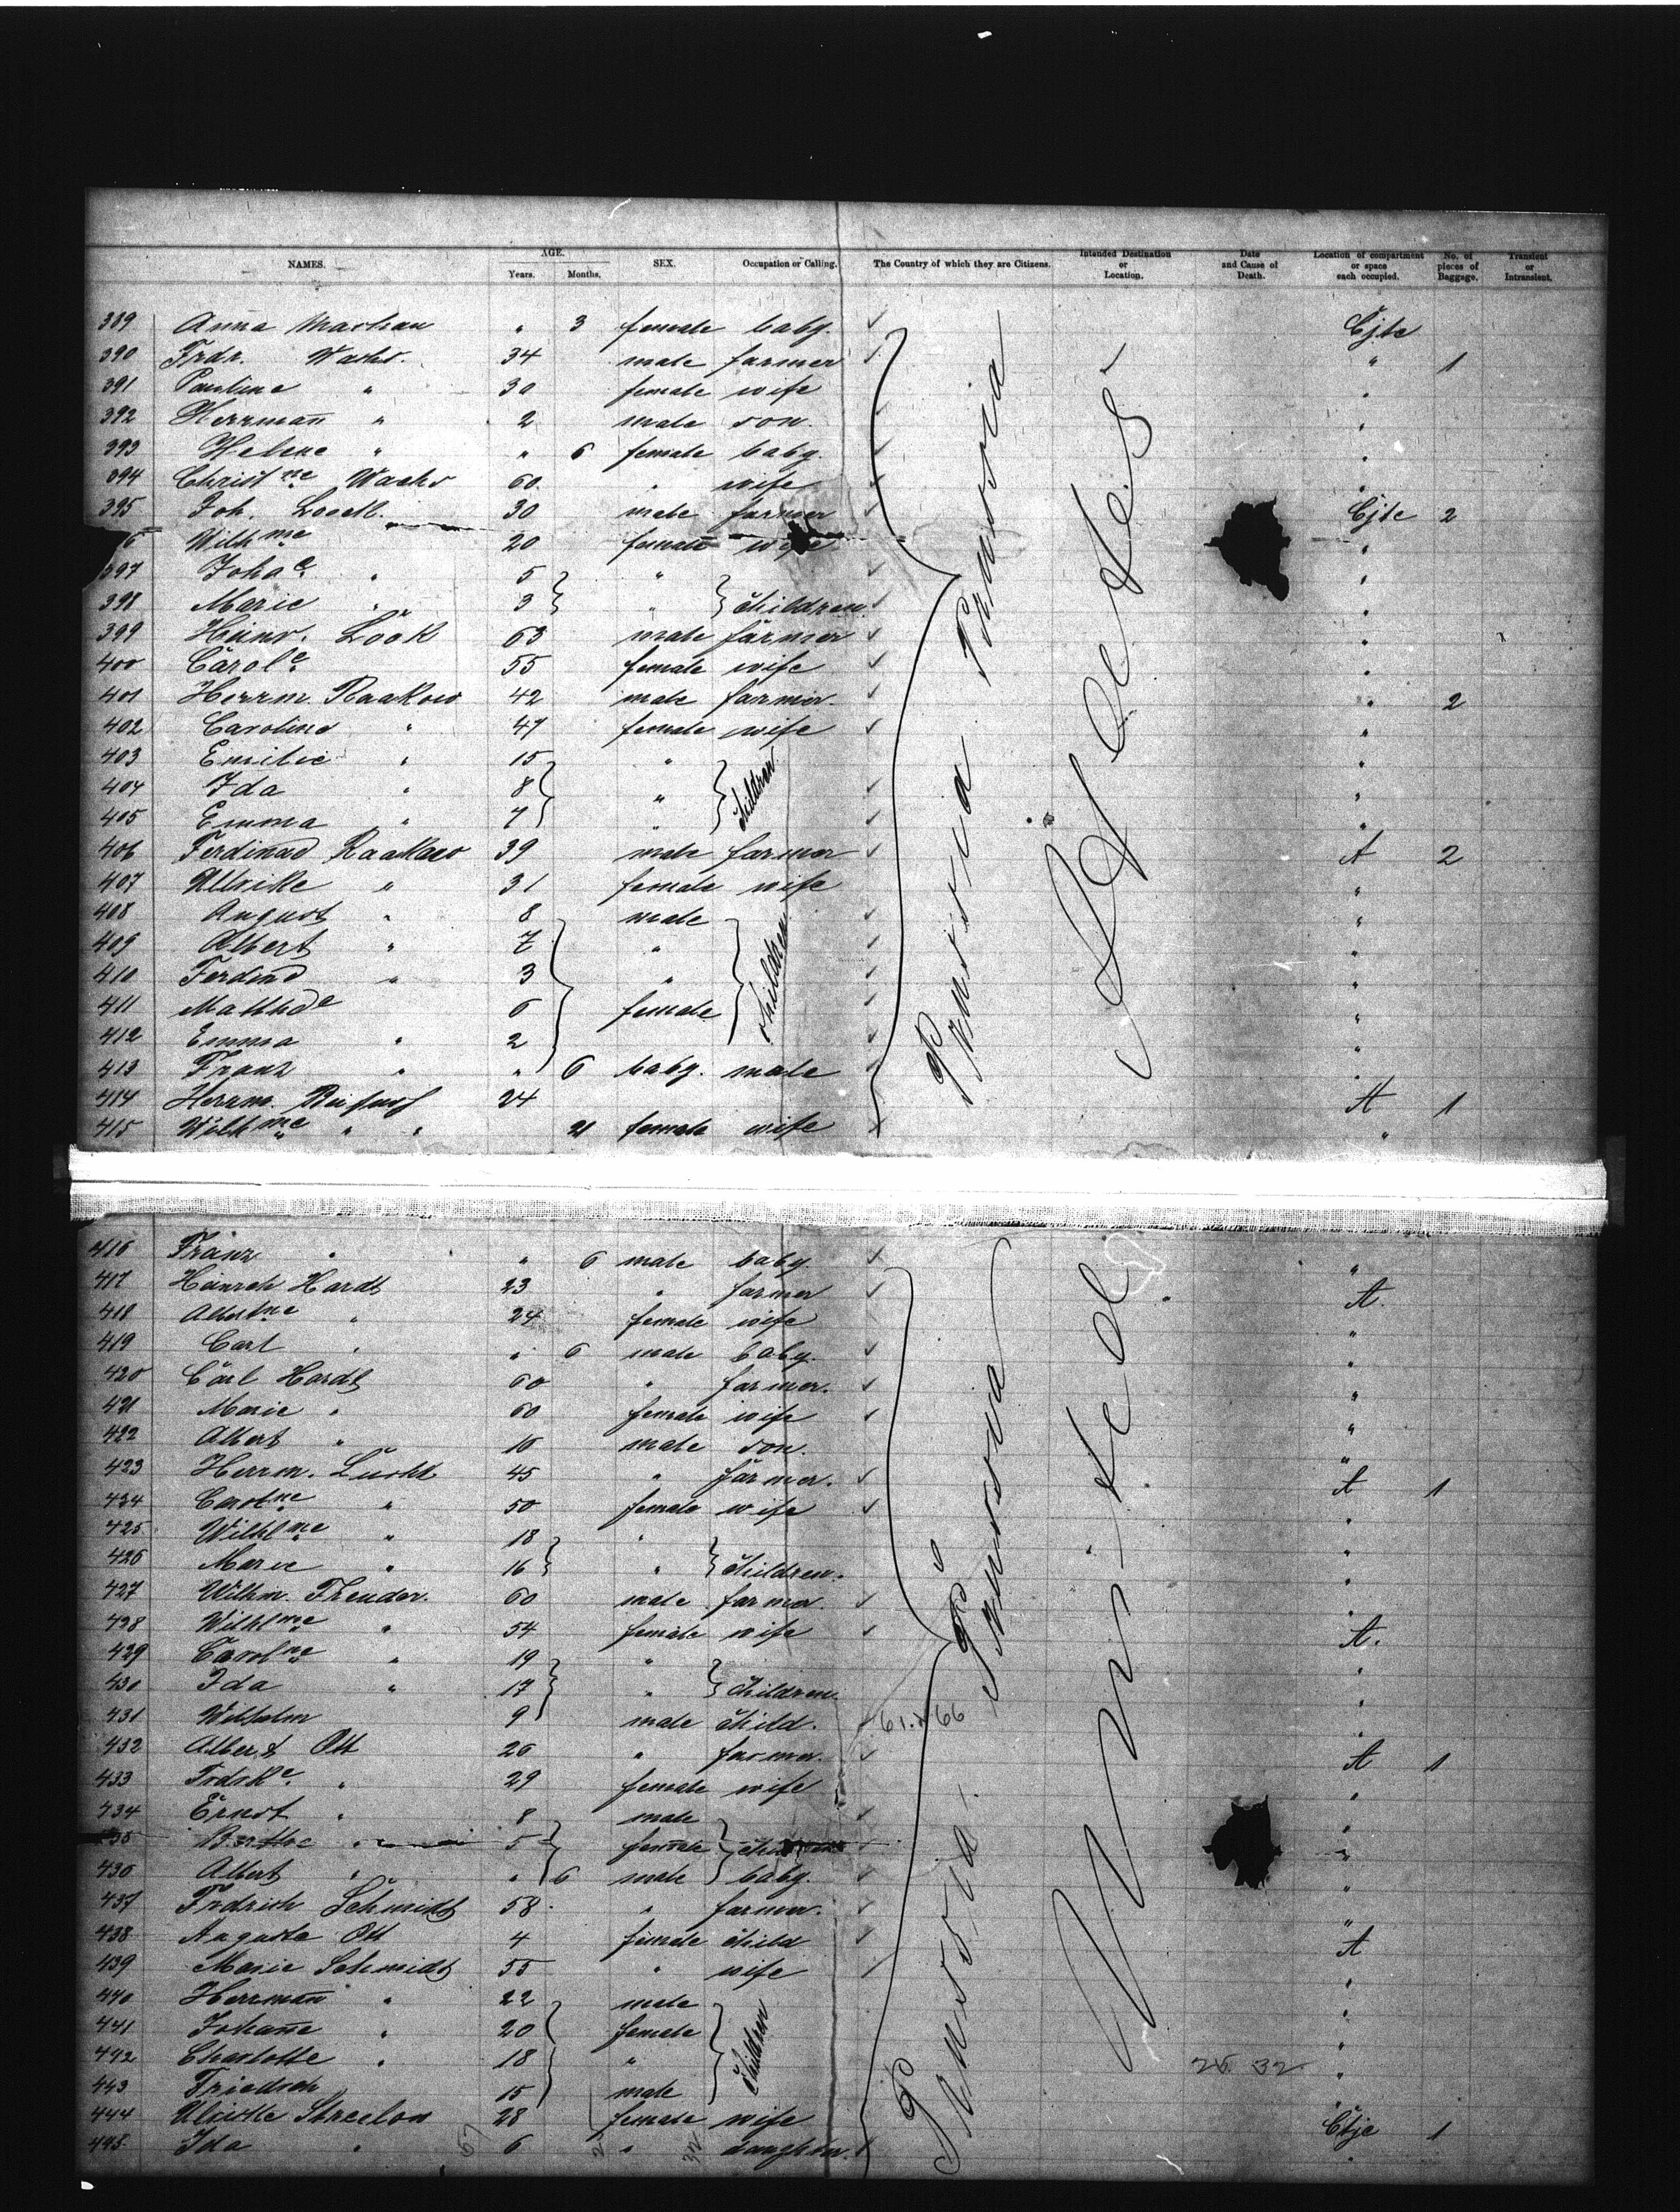 NAMES. AGE. Years. Months. SEX. Occupation or Calling. The Country of which they are Citizens. Intended Destination or Location. Date and Cause of Death. Location of compartment or space each occupied. No. of pieces of Baggage. Transient or Intransient.
389 Anna " 3 female baby. Cjte
390 Frdr. Wachs. 34 male farmer " 1
391 Pauline " 30 female wife "
392 Herrman̄ " 2 male son. "
393 Helene " " 6 female baby "
394 Christne Wachs 60 " wife "
395 Joh. 30 male farmer Cjte 2
6 Wilhme 20 female wife "
397 Johae " 5 " "
398 Marie " 3 " children "
399 Heinr. Löök 63 male farmer "
400 Carole 55 female wife "
401 Herrm. Raakow 42 male farmer. " 2
402 Caroline " 47 female wife "
403 Emilie " 15 " "
404 Ida " 8 " children "
405 Emma " 7 " "
406 Ferdinad Raakow 39 male farmer A 2
407 Ullrike " 31 female wife "
408 August " 8 male "
409 Albert " 7 " "
410 Ferdind " 3 " children "
411 Mathhde 6 female "
412 Emma " 2 "
413 Franz " " 6 baby. male "
414 Herrm. 24 A 1
415 Wilhme " " 21 female wife "
Prussia Prussia
States
416 Franz " " 6 male baby. "
417 Heinrch Hardt 23 " farmer A.
418 Albertne " 24 female wife "
419 Carl " " 6 male baby. "
420 Carl Hardt 60 " farmer. "
421 Marie " 60 female wife "
422 Albert " 16 male son. "
423 Herrm. Lücht 45 " farmer. A 1
424 Carolne " 50 female wife "
425 Wilhlme " 18 " "
426 Marie " 16 " children. "
427 Wilhm. Theuder. 60 male farmer. "
428 Wilhlme " 54 female wife A.
429 Carolne " 19 " "
430 Ida " 17 " children. "
431 Wilhelm 9 male child. 61. 66 "
432 Albert Ott 26 " farmer. A 1
433 Frdrke. " 29 female wife "
434 Ernst " 8 male "
435 Berthe " 5 female children "
436 Albert " " 6 male baby. "
437 Frdrich Schmidt 58. " farmer. "
438 Auguste Ott 4 female child A
439 Marie Schmidt 55 " wife "
440 Herrman̄ " 22 male "
441 Johan̄e " 20 female "
442 Charlotte " 18 " children 26 32 "
443 Friedrch 15 male "
444 Ulrikke Streelow 28 female wife Ctje 1
445. Ida " 6 " daughter. "
Prussia Prussia
United